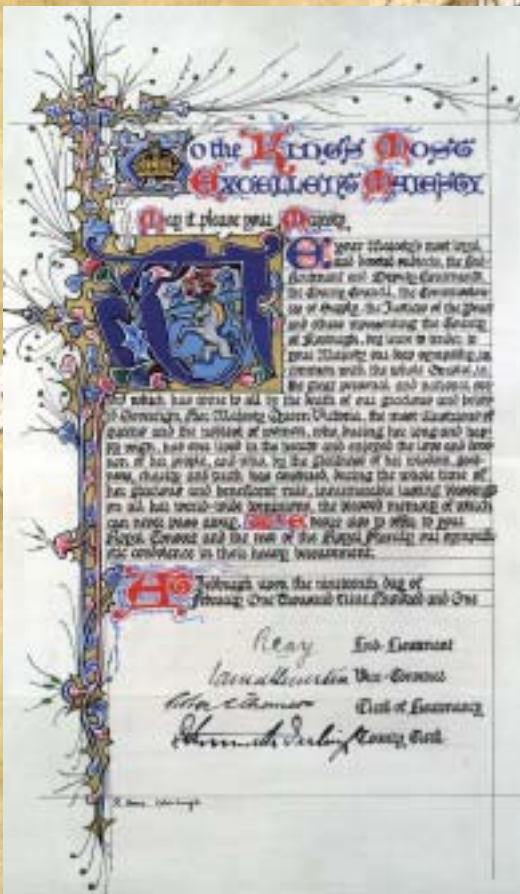 To the King's Most
Excellent Majesty
May it please your Majesty,
We your Majesty's most loyal
and devoted subjects, the Lord
Lieutenant and Deputy Lieutenants,
the County Council, the
of Supply, the Justices of the Peace
and others representing the County
of Roxburgh, beg leave to tender to
your Majesty our deep sympathy, in
common with the whole Empire, in
the great personal and national
which has come to all by the death of our gracious and
Sovereign, Her Majesty Queen Victoria, the most illustrious of
queens and the noblest of women, who, during her long and
reign, had ever lived in the hearts and enjoyed the love and
of her people, and who, by the goodness of her wisdom,
charity and truth, has conferred, during the whole time of
her glorious and beneficent rule, innumerable lasting blessings
on all her world-wide dominions, the blessed memory of which
can never pass away. We desire also to offer to your
Royal Consort and the rest of the Royal Family our
condolence in their heavy bereavement.
At Jedburgh upon the nineteenth day of
February One Thousand Nine Hundred and One
Reay Lord-Lieutenant
Vice-Convener
Clerk of Lieutenancy
County Clerk